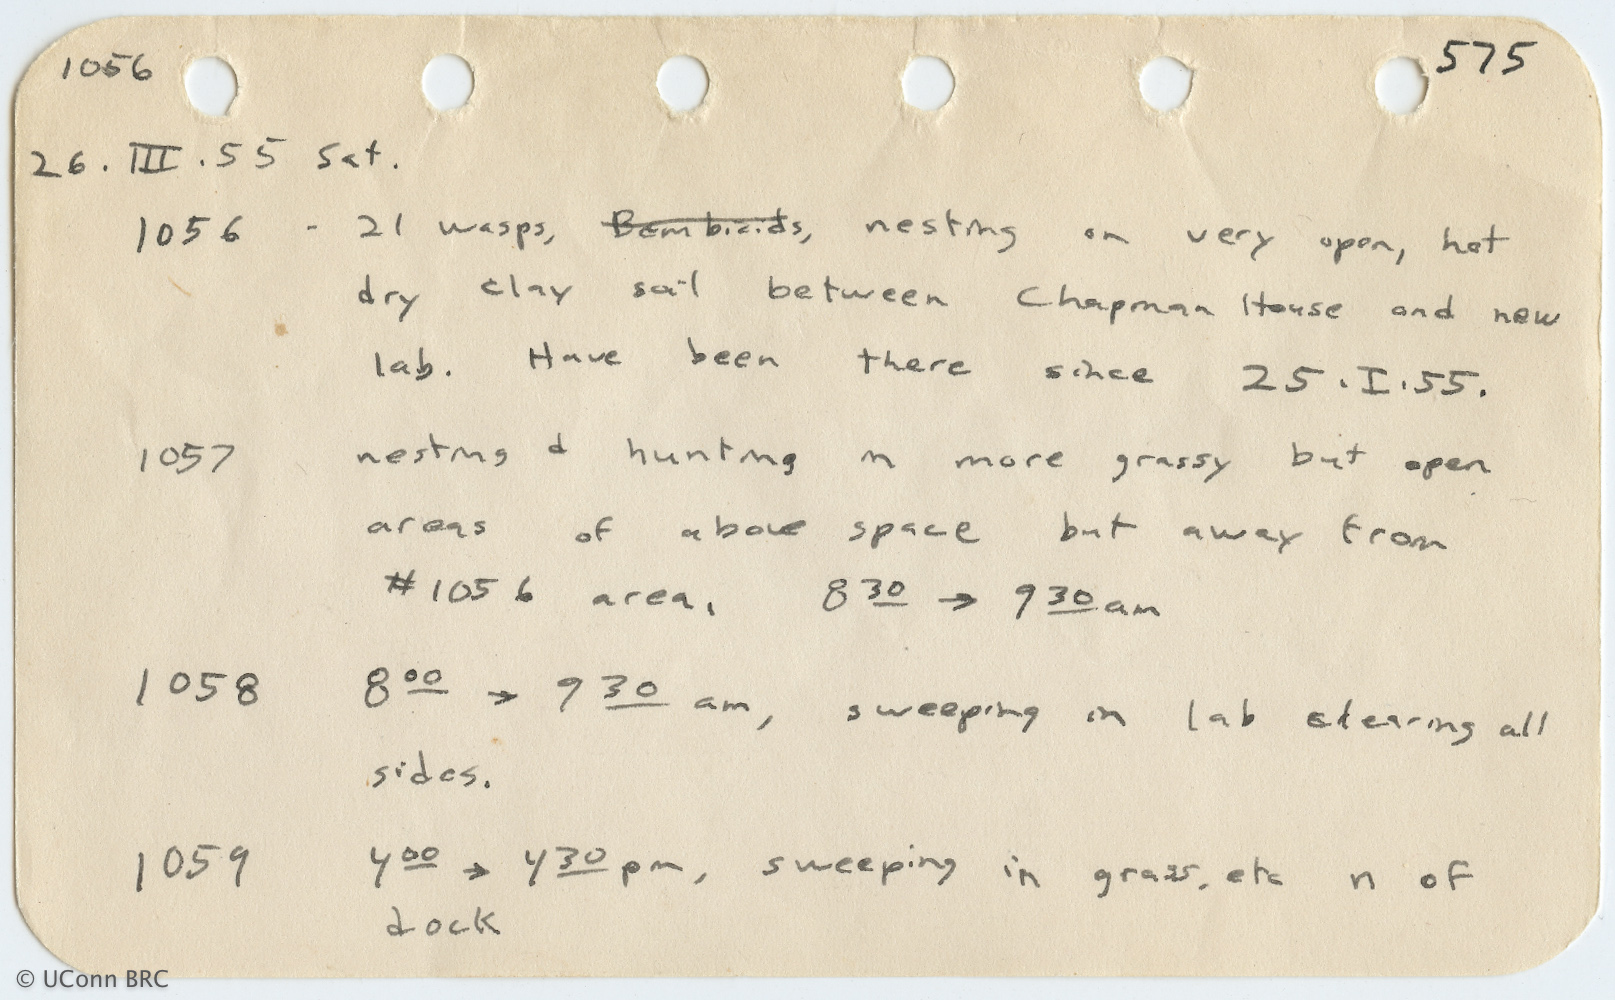 1056 575
26.III.55 Sat.
1056 - 21 wasps, Bembicids, nesting on very open, hot
dry clay soil between Chapman House and new
lab. Have been there since 25.I.55.
1057 nesting & hunting in more grassy but open
areas of above space but away from
#1056 area. 8 30 → 9 30 am
1058 8 00 → 9 30 am, sweeping in lab clearing all
sides.
1059 4 00 → 4 30 pm, sweeping in grass, etc n of
dock
© UConn BRC